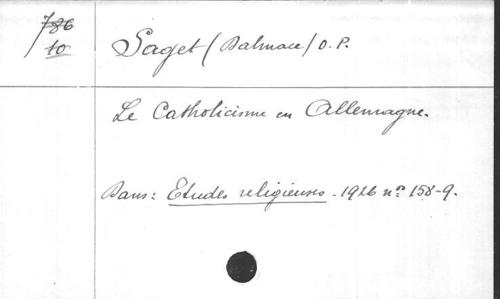 786
10
Saget (Dalmace) O.P.
Le Catholicisme en Allemagne.
Dans: Etudes religieuses - 1926 nos 158-9.